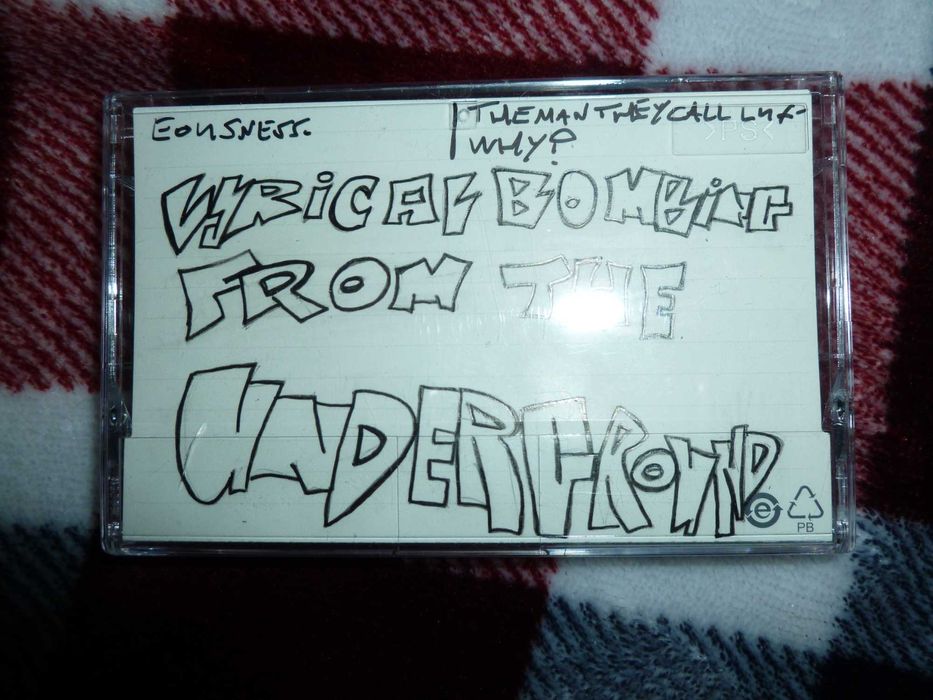 EOUSNESS.
THE MAN THEY CALL
WHY?
>PS<
LYRICAL BOMBING
FROM THE
UNDERGROUND
e
PB